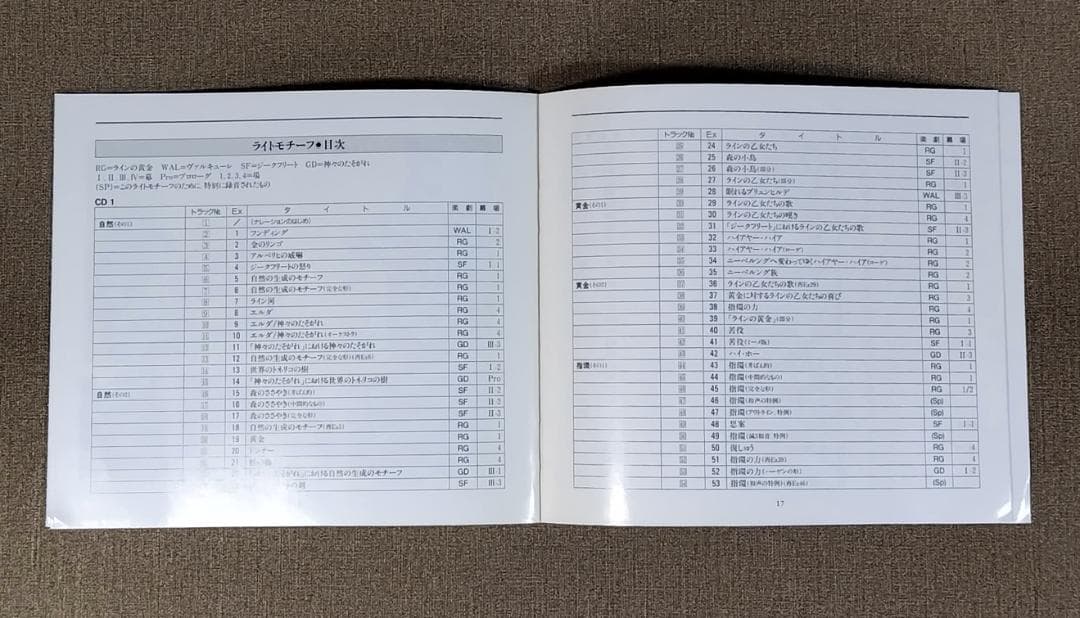 ライトモチーフ●目次
RG=ラインの黄金 WAL=ヴァルキューレ SF=ジークフリート GD=神々のたそがれ
Ⅰ、Ⅱ、Ⅲ、Ⅳ=幕 Pro=プロローグ 1, 2, 3, 4=場
(SP)=このライトモチーフのために、特別に録音されたもの
CD 1
トラック№ Ex タイトル 楽劇 幕 場
自然(その1) 1 / (ナレーションのはじめ)
2 1 フンディング WAL Ⅰ-2
3 2 金のリンゴ RG 2
4 3 アルベリヒの威嚇 RG 1
5 4 ジークフリートの怒り SF Ⅰ-1
6 5 自然の生成のモチーフ RG 1
7 6 自然の生成のモチーフ(完全な形) RG 1
8 7 ライン河 RG 1
9 8 エルダ RG 4
10 9 エルダ/神々のたそがれ RG 4
11 10 エルダ/神々のたそがれ(オーケストラ) RG 4
12 11 「神々のたそがれ」における神々のたそがれ GD Ⅲ-3
13 12 自然の生成のモチーフ(完全な形)(再Ex6) RG 1
14 13 世界のトネリコの樹 SF Ⅰ-2
15 14 「神々のたそがれ」における世界のトネリコの樹 GD Pro
自然(その2) 16 15 森のささやき(初ば的) SF Ⅱ-2
17 16 森のささやき(中間的なもの) SF Ⅱ-2
18 17 森のささやき(完全な形) SF Ⅱ-3
19 18 自然の生成のモチーフ(再Ex5) RG 1
19 黄金 RG 1
20 ドンナー RG 4
21 RG 4
たそがれ」における自然の生成のモチーフ GD Ⅲ-1
の剣 SF Ⅲ-3
トラック№ Ex タイトル 楽劇 幕 場
25 24 ラインの乙女たち RG 1
26 25 森の小鳥 SF Ⅱ-2
27 26 森の小鳥(部分) SF Ⅱ-3
28 27 ラインの乙女たち(部分) RG 1
29 28 眠れるブリュンヒルデ WAL Ⅲ-3
黄金(その1) 30 29 ラインの乙女たちの歌 RG 1
31 30 ラインの乙女たちの嘆き RG 4
32 31 「ジークフリート」におけるラインの乙女たちの歌 SF Ⅱ-3
33 32 ハイアヤー・ハイア RG 1
34 33 ハイアヤー・ハイア(ローゲ) RG 2
35 34 ニーベルングへ変わってゆくハイアヤー・ハイア(ローゲ) RG 2
36 35 ニーベルング族 RG 2
黄金(その2) 37 36 ラインの乙女たちの歌(再Ex29) RG 1
38 37 黄金に対するラインの乙女たちの喜び RG 1
39 38 指環の力 RG 3
40 39 「ラインの黄金」(部分) RG 1
41 40 苦役 RG 3
42 41 苦役(ミーメ版) SF Ⅰ-1
43 42 ハイ・ホー GD Ⅱ-3
指環(その1) 44 43 指環(初ば的) RG 1
45 44 指環(中間的なもの) RG 1
46 45 指環(完全な形) RG 1/2
47 46 指環(和声の特例) (Sp)
48 47 指環(アウトライン、特例) (Sp)
49 48 思案 SF Ⅰ-1
50 49 指環(減3和音、特例) (Sp)
51 50 復しゅう RG 4
52 51 指環の力(再Ex38) RG 4
53 52 指環の力(ハーゲンの形) GD Ⅰ-2
54 53 指環(和声の特例)(再Ex46) (Sp)
17